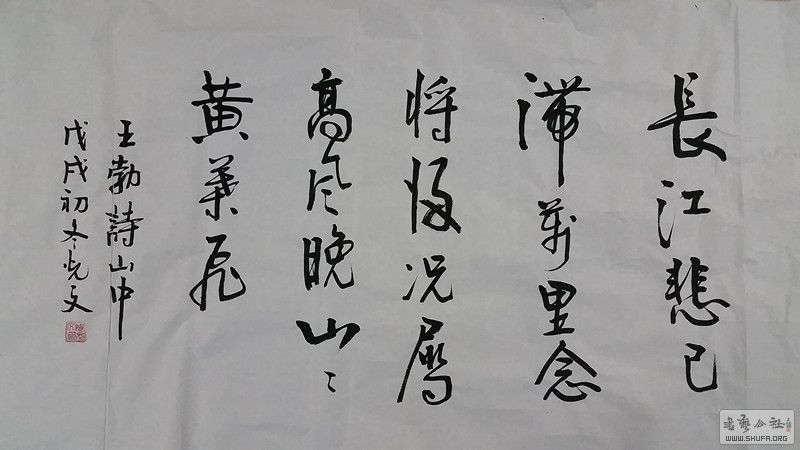 長江悲已
滞萬里念
将歸况屬
高风晚山〻
黄葉飛
王勃詩山中
戊戌初冬文
书艺公社
WWW.SHUFA.ORG